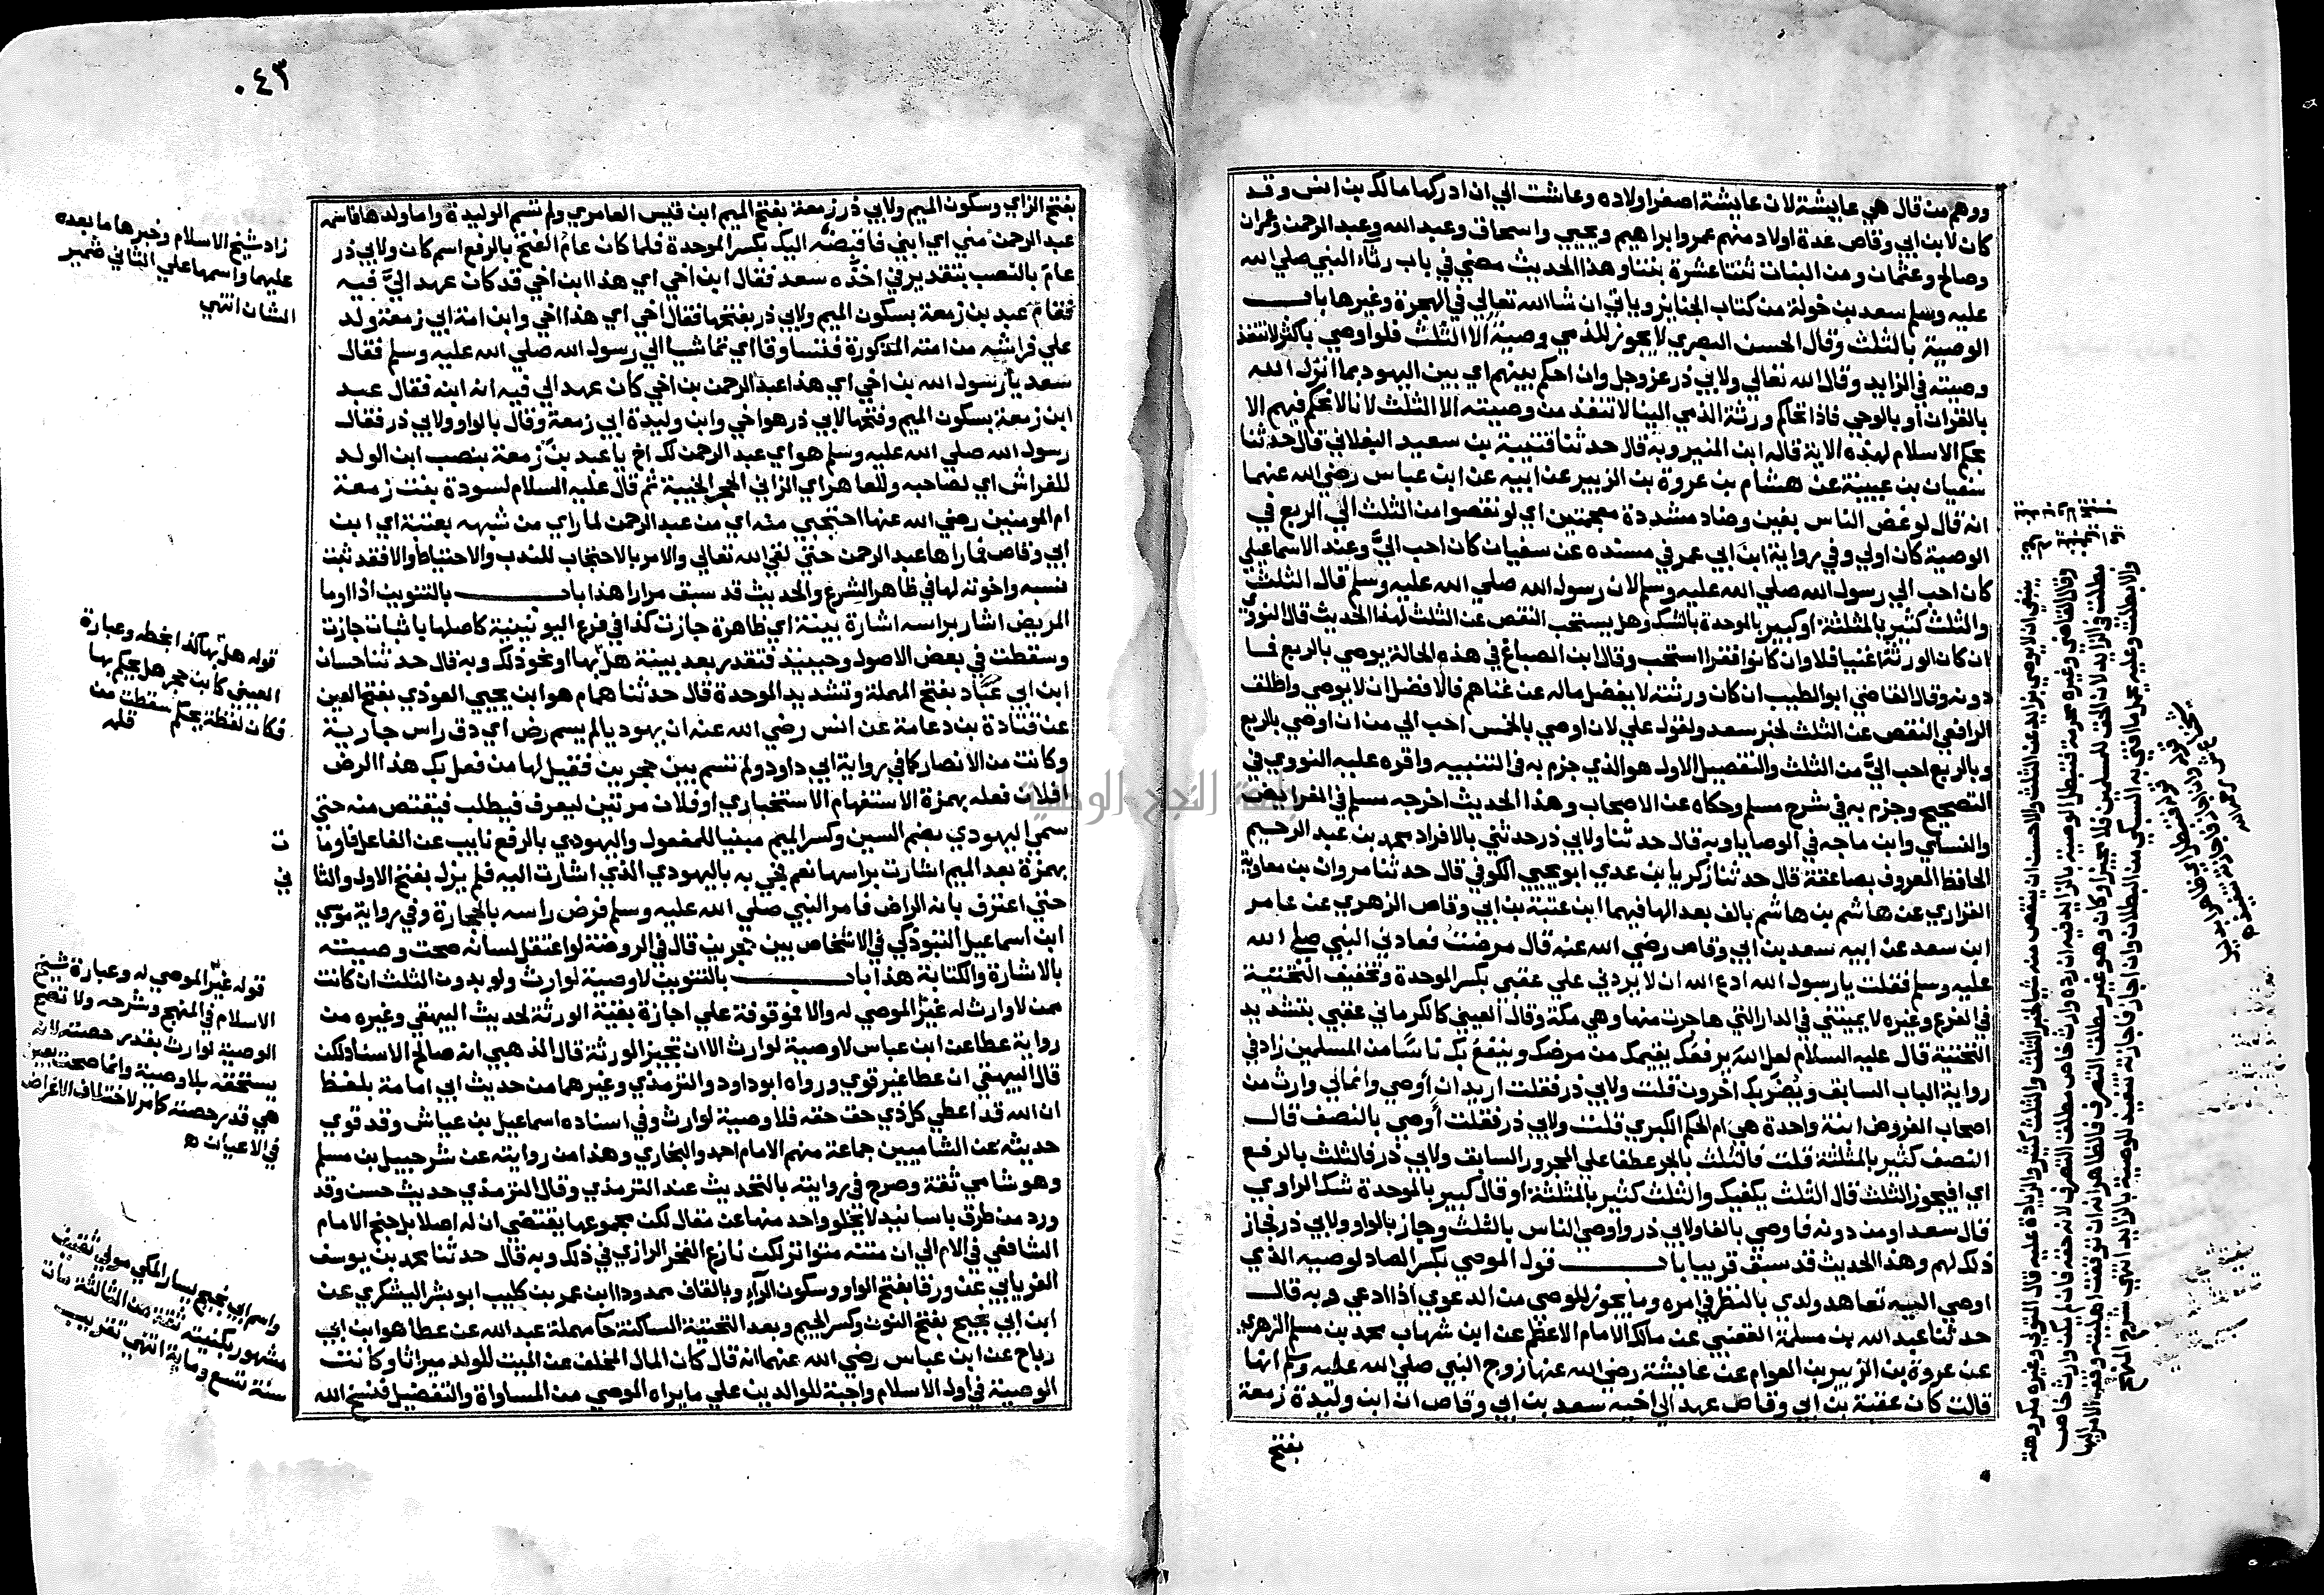 ووهم من قال هي عايشة لان عايشة اصغر اولاده وعاشت الي ان ادركها مالك بن انس وقد
كان لابن ابي وقاص عدة اولاد منهم عمر وابراهيم ويحيي واسحاق وعبد الله وعبد الرحمن وعمران
وصالح وعثمان ومن البنات ثنتا عشرة بنتا وهذا الحديث مضي في باب رثاء النبي صلي الله
عليه وسلم سعد بن خولة من كتاب الجنايز وياتي ان شا الله تعالي في الهجرة وغيرها باب
الوصية بالثلث وقال الحسن البصري لا يجوز للذمي وصية الا الثلث فلو اوصي باكثر لا تنفذ
وصيته في الزايد وقال الله تعالي ولابي ذر عز وجل وان احكم بينهم اي بين اليهود بما انزل الله
بالقران او بالوحي فاذا تحاكم ورثة الذمي الينا لا تنفذ من وصيته الا الثلث لانا لا نحكم فيهم الا
بحكم الاسلام لهذه الاية قاله ابن المنير وبه قال حدثنا قتيبة بن سعيد البغلاني قال حدثنا
سفيان بن عيينة عن هشام بن عروة بن الزبير عن ابيه عن ابن عباس رضي الله عنهما
انه قال لو غض الناس بغين وضاد مشددة معجمتين اي لو نقصوا من الثلث الي الربع في
الوصية كان اولي وفي رواية ابن ابي عمر في مسنده عن سفيان كان احب اليّ وعند الاسماعيلي
كان احب الي رسول الله صلي الله عليه وسلم لان رسول الله صلي الله عليه وسلم قال الثلث
والثلث كثير بالمثلثة او كبير بالموحدة بالشك وهل يستحب النقص عن الثلث لهذا الحديث قال النووي
ان كان الورثة اغنيا فلا وان كانوا فقرا استحب وقال ابن الصباغ في هذه الحالة يوصي بالربع فما
دونه وقال القاضي ابو الطيب ان كان ورثته لا يفضل ماله عن غناهم فالافضل ان لا يوصي واطلق
الرافعي النقص عن الثلث لخبر سعد ولقول علي لان اوصي بالخمس احب الي من ان اوصي بالربع
وبالربع احب اليّ من الثلث والتفصيل الاول هو الذي جزم به في التنبيه واقره عليه النووي في
التصحيح وجزم به في شرح مسلم وحكاه عن الاصحاب وهذا الحديث اخرجه مسلم في الفرايض
والنساي وابن ماجه في الوصايا وبه قال حدثنا ولابي ذر حدثني بالافراد محمد بن عبد الرحيم
الحافظ المعروف بصاعقة قال حدثنا زكريا بن عدي ابو يحيي الكوفي قال حدثنا مروان بن معاوية
الفزاري عن هاشم بن هاشم بالف بعد الها فيهما ابن عتبة بن ابي وقاص الزهري عن عامر
ابن سعد عن ابيه سعد بن ابي وقاص رضي الله عنه قال مرضت فعادني النبي صلي الله
عليه وسلم فقلت يا رسول الله ادع الله ان لا يردني علي عقبي بكسر الموحدة وتخفيف التحتية
في الفرع وغيره لا يميتني في الدار التي هاجرت منها وهي مكة وقال العيني كالكرماني عقبي بتشديد
التحتية قال عليه السلام لعل الله يرفعك يقيمك من مرضك وينفع بك ناسا من المسلمين زاد في
رواية الباب السابق ويضر بك اخرون قلت ولابي ذر فقلت اريد ان اوصي وانما لي وارث من
اصحاب الفروض ابنة واحدة هي ام الحكم الكبري قلت ولابي ذر فقلت أوصي بالنصف قال
النصف كثير بالمثلثة قلت فالثلث بالجر عطفا علي المجرور السابق ولابي ذر فالثلث بالرفع
اي افيجوز الثلث قال الثلث يكفيك والثلث كثير بالمثلثة او قال كبير بالموحدة شك الراوي
قال سعد او من دونه فاوصي بالفا ولابي ذر واوصي الناس بالثلث وجاز بالواو ولابي ذر فجاز
ذلك لهم وهذا الحديث قد سبق قريبا باب قول الموصي بكسر الصاد لوصيه الذي
اوصي اليه تعاهد ولدي بالنظر في امره وما يجوز للوصي من الدعوي اذا ادعي وبه قال
حدثنا عبد الله بن مسلمة القعنبي عن مالك الامام الاعظم عن ابن شهاب محمد بن مسلم الزهري
عن عروة بن الزبير بن العوام عن عايشة رضي الله عنها زوج النبي صلي الله عليه وسلم انها
قالت كان عتبة بن ابي وقاص عهد الي اخيه سعد بن ابي وقاص ان ابن وليدة زمعة
بفتح
ينبغي ان لا يوصي بزايد عن الثلث والاحسن ان ينقص منه شيا لخبر الثلث والثلث كثير والزيادة عليه قال المتولي وغيره مكروهة
وقال القاضي وغيره محرمة فتبطل الوصية بالزايد فيه ان رده وارث خاص مطلق التصرف لانه حقه فان لم يكن وارث خاص
بطلت في الزايد لان الحق للمسلمين فلا مجيز او كان وهو غير مطلق التصرف فالظاهر انه ان توقعت اهليته وقف الامر اليها
والا بطلت وعليه يحمل ما افتي به السبكي من البطلان وان اجاز فاجازته تنفيذ للوصية بالزايد انتهي شرح المنهج
٠٤٣
بفتح الزاي وسكون الميم ولابي ذر زمعة بفتح الميم ابن قيس العامري ولم تسم الوليدة واما ولدها فاسمه
عبد الرحمن مني اي ابني فاقبضه اليك بكسر الموحدة فلما كان عامُ الفتح بالرفع اسم كان ولابي ذر
عامَ بالنصب بتقدير في اخذه سعد فقال ابن اخي اي هذا ابن اخي قد كان عهد اليّ فيه
فقام عبد بن زمعة بسكون الميم ولابي ذر بفتحها فقال اخي اي هذا اخي وابن امة ابي زمعة ولد
علي فراشه من امته المذكورة فتساوقا اي تماشيا الي رسول الله صلي الله عليه وسلم فقال
سعد يا رسول الله بن اخي اي هذا عبد الرحمن بن اخي كان عهد الي فيه انه ابنه فقال عبد
ابن زمعة بسكون الميم وفتحها لابي ذر هو اخي وابن وليدة ابي زمعة وقال بالواو ولابي ذر فقال
رسول الله صلي الله عليه وسلم هو اي عبد الرحمن لك اخ يا عبد بن زمعة بنصب ابن الولد
للفراش اي لصاحبه وللعاهر اي الزاني الحجر الخيبة ثم قال عليه السلام لسودة بنت زمعة
ام المومنين رضي الله عنها احتجبي منه اي من عبد الرحمن لما راي من شبهه بعتبة اي ابن
ابي وقاص فما راها عبد الرحمن حتي لقي الله تعالي والامر بالاحتجاب للندب والاحتياط والا فقد ثبت
نسبه واخوته لها في ظاهر الشرع والحديث قد سبق مرارا هذا باب بالتنوين اذا اوما
المريض اشار براسه اشارة بينة اي ظاهرة جازت كذا في فرع اليونينية كاصلها باثبات جازت
وسقطت في بعض الاصول وحينيذ فتقدر بعد بينة هل بها او نحو ذلك وبه قال حدثنا حسان
ابن ابي عبّاد بفتح المهملة وتشديد الموحدة قال حدثنا همام هو ابن يحيي العوذي بفتح العين
عن قتادة بن دعامة عن انس رضي الله عنه ان يهوديا لم يسم رض اي دق راس جارية
وكانت من الانصار كما في رواية ابي داود ولم تسم بين حجرين فقيل لها من فعل بك هذا الرض
افلان فعله بهمزة الاستفهام الاستخباري او فلان مرتين ليعرف فيطلب فيقتص منه حتي
سمي اليهودي بضم السين وكسر الميم مبنيا للمفعول واليهودي بالرفع نايب عن الفاعل فاومات
بهمزة بعد الميم اشارت براسها نعم فجي به باليهودي الذي اشارت اليه فلم يزل بفتح الاول والثاني
حتي اعترف بانه الراض فامر النبي صلي الله عليه وسلم فرض راسه بالحجارة وفي رواية موسي
ابن اسماعيل التبوذكي في الاشخاص بين حجرين قال في الروضة لو اعتقل لسانه صحت وصيته
بالاشارة والكتابة هذا باب بالتنوين لا وصية لوارث ولو بدون الثلث ان كانت
ممن لا وارث له غيرُ الموصي له والا فموقوفة علي اجازة بقية الورثة لحديث البيهقي وغيره من
رواية عطا عن ابن عباس لا وصية لوارث الا ان تجيز الورثة قال الذهبي انه صالح الاسناد لكن
قال البيهقي ان عطا غير قوي ورواه ابو داود والترمذي وغيرهما من حديث ابي امامة بلفظ
ان الله قد اعطي كل ذي حق حقه فلا وصية لوارث وفي اسناده اسماعيل بن عياش وقد قوي
حديثه عن الشاميين جماعة منهم الامام احمد والبخاري وهذا من روايته عن شرحبيل بن مسلم
وهو شامي ثقة وصرح في روايته بالتحديث عند الترمذي وقال الترمذي حديث حسن وقد
ورد من طرق باسانيد لا يخلو واحد منها عن مقال لكن مجموعها يقتضي ان له اصلا بل جنح الامام
الشافعي في الام الي ان متنه متواتر لكن نازع الفخر الرازي في ذلك وبه قال حدثنا محمد بن يوسف
الفريابي عن ورقا بفتح الواو وسكون الراء وبالقاف ممدودا ابن عمر بن كليب ابو بشر اليشكري عن
ابن ابي نجيح بفتح النون وكسر الجيم وبعد التحتية الساكنة حا مهملة عبد الله عن عطا هو ابن ابي
رباح عن ابن عباس رضي الله عنهما انه قال كان المال المخلف عن الميت للولد ميراثا وكانت
الوصية في اول الاسلام واجبة للوالدين علي ما يراه الموصي من المساواة والتفضيل فنسخ الله
زاد شيخ الاسلام وخبرها ما بعده
عليهما واسمها علي الثاني ضمير
الشان انتهي
قوله هل بها كذا بخطه وعبارة
العيني كابن حجر هل يحكم بها
فكان لفظة يحكم سقطت من
قلمه
قوله غيرُ الموصي له وعبارة شيخ
الاسلام في المنهج وشرحه ولا تصح
الوصية لوارث بقدر حصته لانه
يستحقه بلا وصية وانما صحت بعين
هي قدر حصته كما مر لاختلاف الاغراض
في الاعيان ه
واسم ابي نجيح يسار المكي مولي ثقيف
مشهور بكنيته ثقة من الثالثة مات
سنة تسع وماية انتهي تقريب